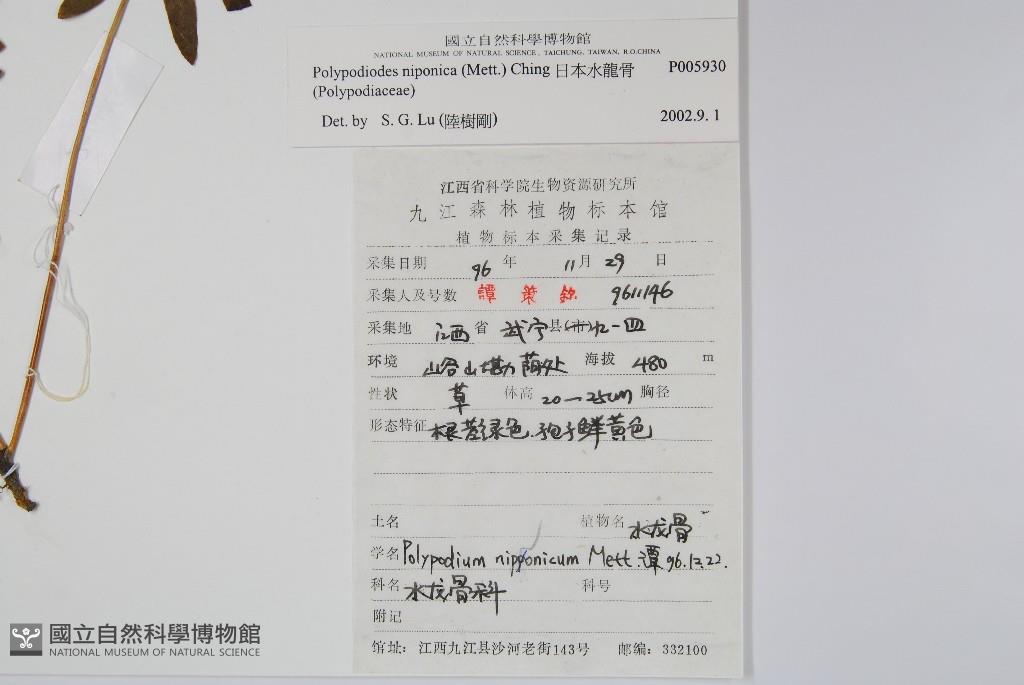 國立自然科學博物館
NATIONAL MUSEUM OF NATURAL SCIENCE, TAICHUNG, TAIWAN, R.O.CHINA
Polypodiodes niponica (Mett.) Ching 日本水龍骨 P005930
(Polypodiaceae)
Det. by S. G. Lu (陸樹剛) 2002.9.1
江西省科学院生物资源研究所
九江森林植物标本馆
植物标本采集记录
采集日期 96 年 11 月 29 日
采集人及号数 譚策銘 9611146
采集地 江西 省 武宁 县(市) 九一四
环境 山谷山墈荫处 海拔 480 m
性状 草 体高 20—25cm 胸径
形态特征 根茎绿色.孢子鲜黄色
土名 植物名 水龙骨
学名 Polypodium nipponicum Mett. 谭 96.12.22.
科名 水龙骨科 科号
附记
馆址: 江西九江县沙河老街143号 邮编: 332100
國立自然科學博物館
NATIONAL MUSEUM OF NATURAL SCIENCE